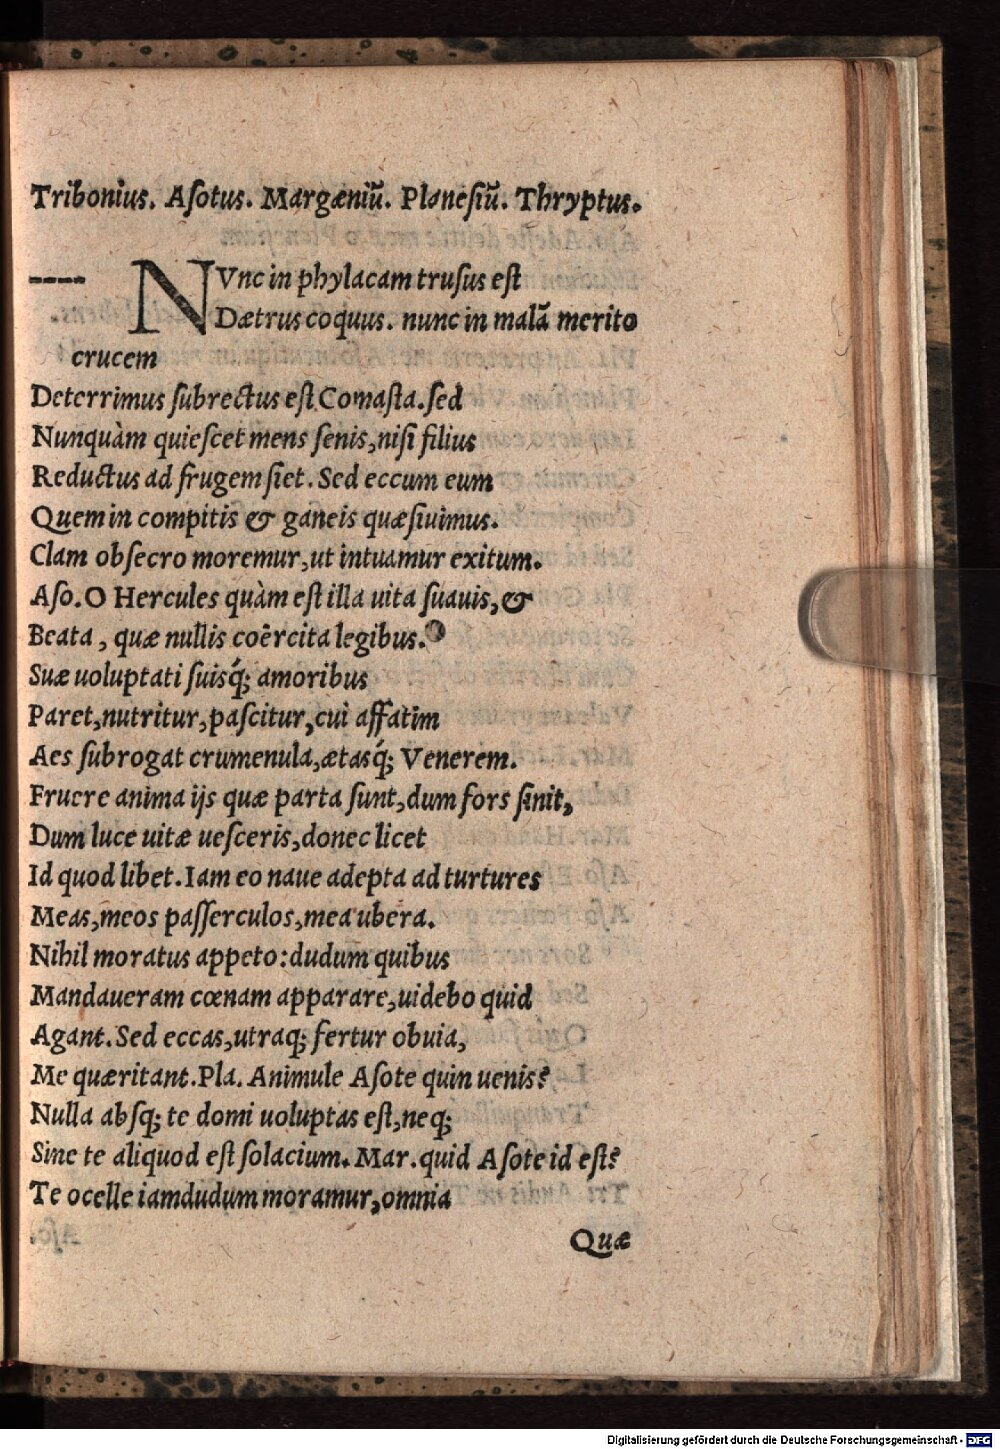 Tribonius. Asotus. Margæniū. Planesiū. Thryptus.
---- NVnc in phylacam trusus est
Dætrus coquus. nunc in malā merito
crucem
Deterrimus subrectus est Comasta. sed
Nunquàm quiescet mens senis, nisi filius
Reductus ad frugem siet. Sed eccum eum
Quem in compitis & ganeis quæsiuimus.
Clam obsecro moremur, ut intuamur exitum.
Aso. O Hercules quàm est illa uita suauis, &
Beata, quæ nullis coërcita legibus.
Suæ uoluptati suisq́; amoribus
Paret, nutritur, pascitur, cui affatim
Aes subrogat crumenula, ætasq́; Venerem.
Fruere anima ijs quæ parta sunt, dum fors sinit,
Dum luce uitæ uesceris, donec licet
Id quod libet. Iam eo naue adepta ad turtures
Meas, meos passerculos, mea ubera.
Nihil moratus appeto: dudum quibus
Mandaueram cœnam apparare, uidebo quid
Agant. Sed eccas, utraq; fertur obuia,
Me quæritant. Pla. Animule Asote quin uenis?
Nulla absq; te domi uoluptas est, neq;
Sine te aliquod est solacium. Mar. quid Asote id est?
Te ocelle iamdudum moramur, omnia
Quæ
Digitalisierung gefördert durch die Deutsche Forschungsgemeinschaft - DFG